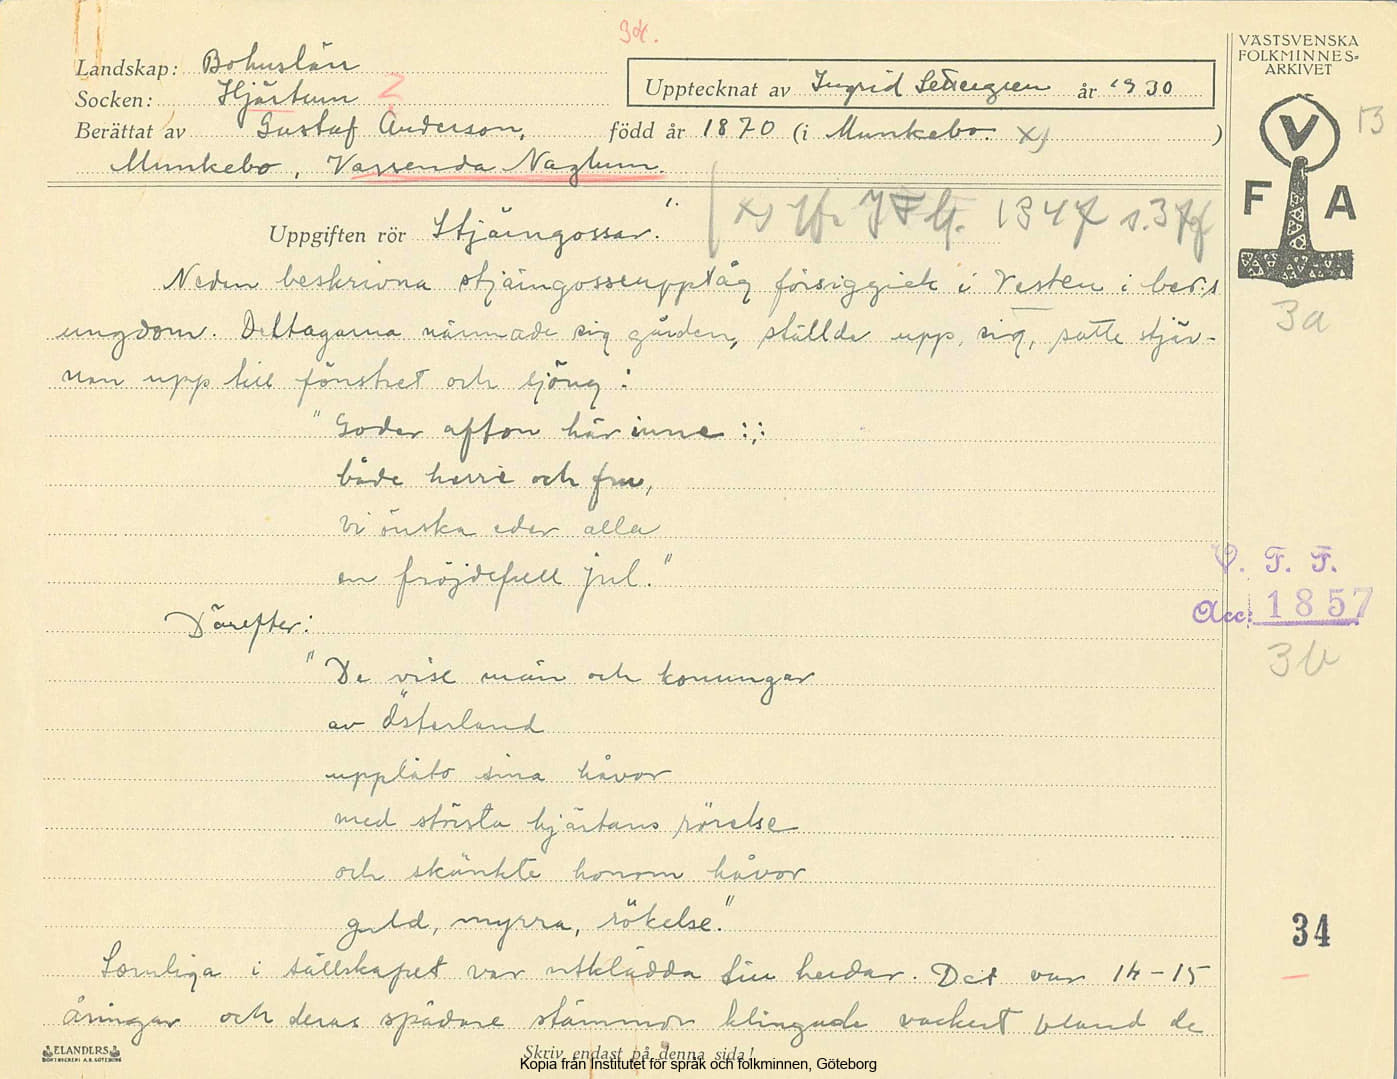 34.
Landskap: Bohuslän
Socken: Hjärtum
Upptecknat av Ingrid Settergren år 1930
Berättat av Gustaf Anderson, född år 1870 (i Munkebo. x) )
Munkebo, Vassenda Naglum.
VÄSTSVENSKA
FOLKMINNES-
ARKIVET
V
F A
13
Uppgiften rör Stjärngossar.
1347
3a
Neden beskrivna stjärngosseupptåg försiggick i Vesten i ber:s
ungdom. Deltagarna närmade sig gården, ställde upp sig, satte stjär-
nan upp till fönstret och sjöng:
"Goder afton här inne :;:
både herre och fru,
vi önska eder alla
en fröjdefull jul."
V. F. F.
Acc: 1857
3b
Därefter:
"De vise män och konungar
av Österland
uppläto sina håvor
med största hjärtans rörelse
och skänkte honom håvor
guld, myrra, rökelse."
34
Somliga i sällskapet var utklädda till herdar. Det var 14-15
åringar och deras spädare stämmor klingade vackert bland de
ELANDERS
BOKTRYCKERI A.B. GÖTEBORG
Skriv endast på denna sida!
Kopia från Institutet för språk och folkminnen, Göteborg